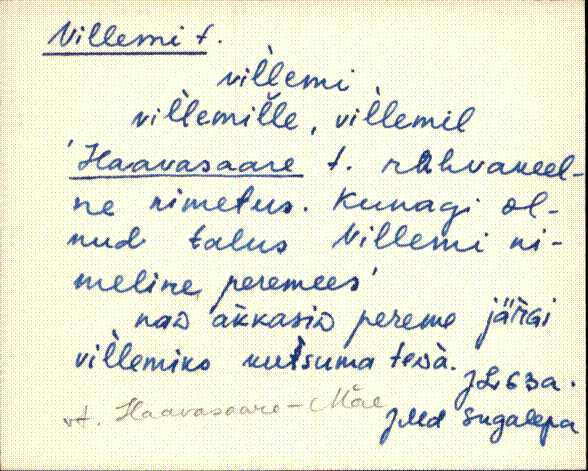 Villemi t.
vil̀lemi
vil̀lemil̆le, vil̀lemil
'Haavasaare t. rahvakeel-
ne nimetus. Kunagi ol-
nud talus Villemi ni-
meline peremees'
naD akkasiD pereme järGi
vil̀lemiks kutsuma teDa.
JL 63a.
vt. Haavasaare-Mäe
JMd Sugalepa